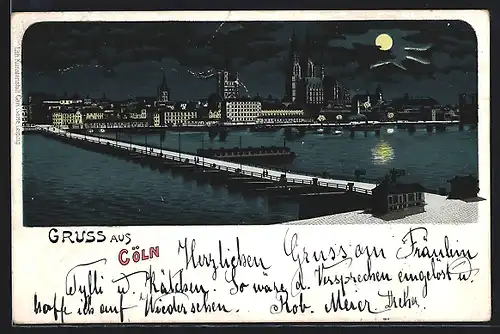 GRUSS AUS
CÖLN
Herzlichen Gruss an Fräulein
Tylli u. Kätchen. So wäre d. Versprechen eingelöst u.
hoffe ich auf Wiedersehen. Rob. Meier